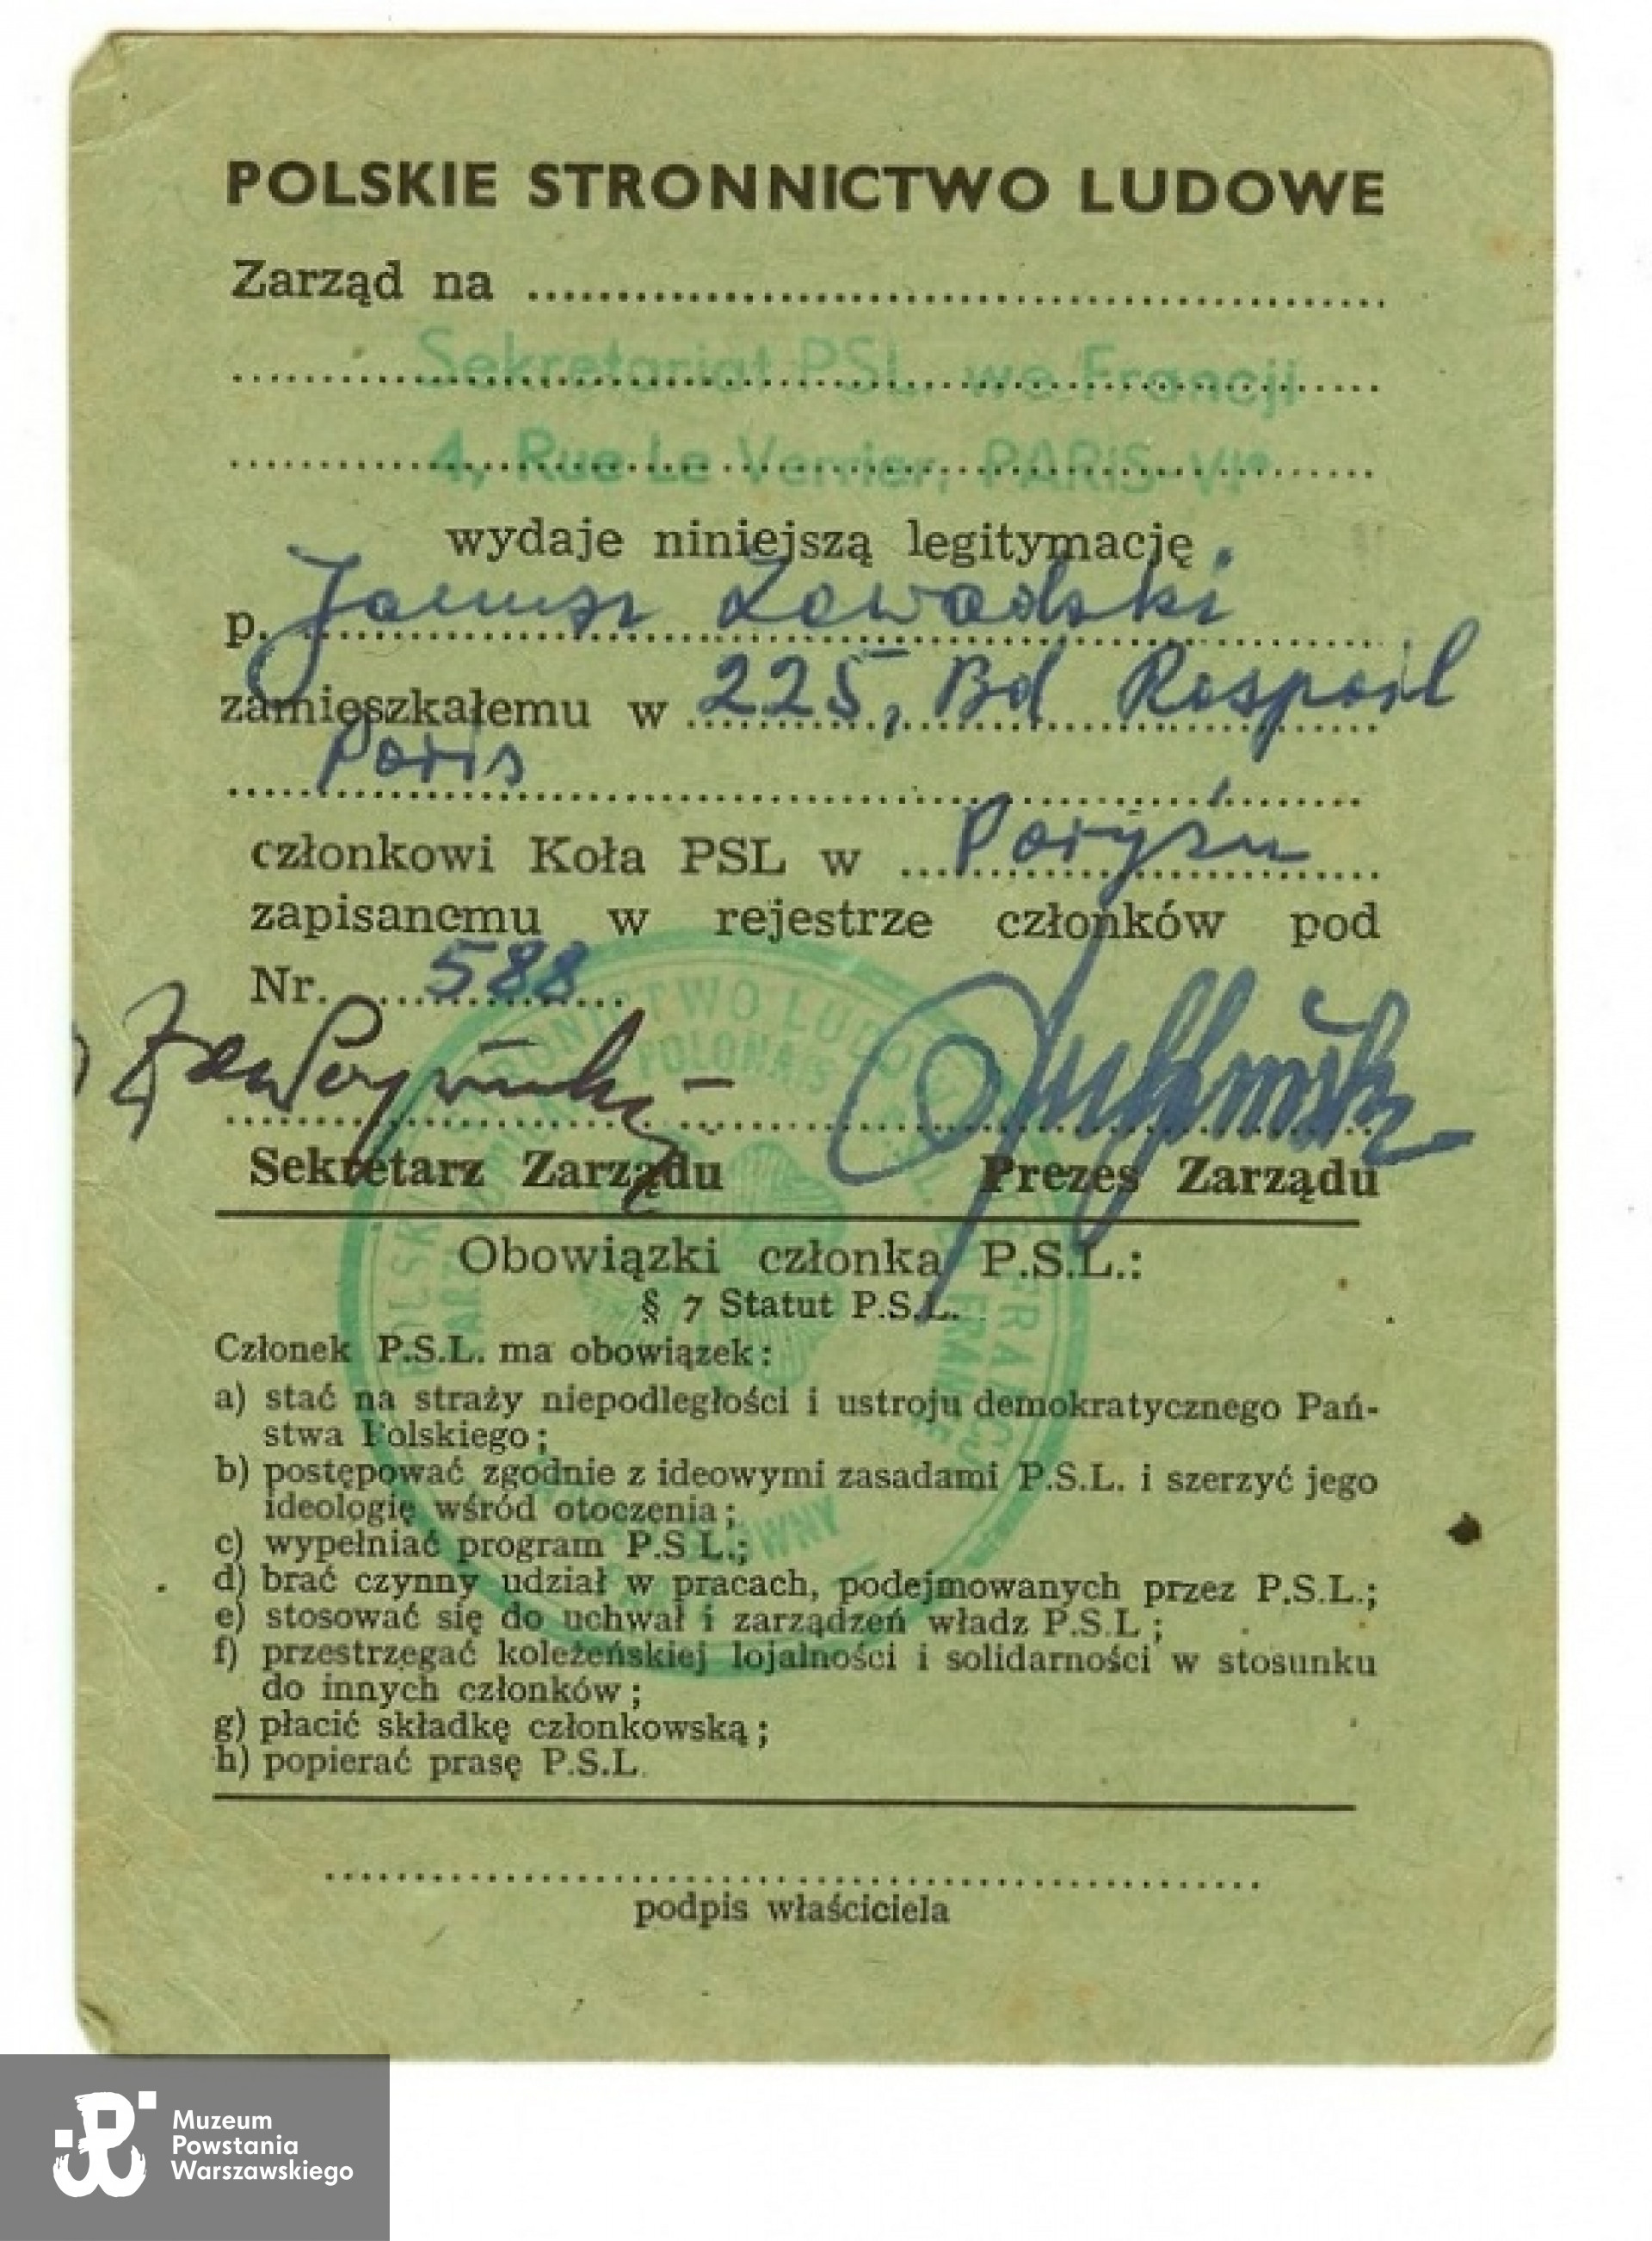 POLSKIE STRONNICTWO LUDOWE
Zarząd na
Sekretariat PSL. we Francji
4, Rue Le Verrier, PARIS-VIe
wydaje niniejszą legitymację
p. Janusz Zawadzki
zamieszkałemu w 225, Bd Raspail
Paris
członkowi Koła PSL w Paryżu
zapisanemu w rejestrze członków pod
Nr. 588
Sekretarz Zarządu Prezes Zarządu
Obowiązki członka P.S.L.:
§ 7 Statut P.S.L.
Członek P.S.L. ma obowiązek:
a) stać na straży niepodległości i ustroju demokratycznego Pań-
stwa Polskiego;
b) postępować zgodnie z ideowymi zasadami P.S.L. i szerzyć jego
ideologię wśród otoczenia;
c) wypełniać program P.S L.;
d) brać czynny udział w pracach, podejmowanych przez P.S.L.;
e) stosować się do uchwał i zarządzeń władz P.S.L;
f) przestrzęgać koleżeńskiej lojalności i solidarności w stosunku
do innych członków;
g) płacić składkę członkowską;
h) popierać prasę P.S.L.
podpis właściciela
Muzeum
Powstania
Warszawskiego